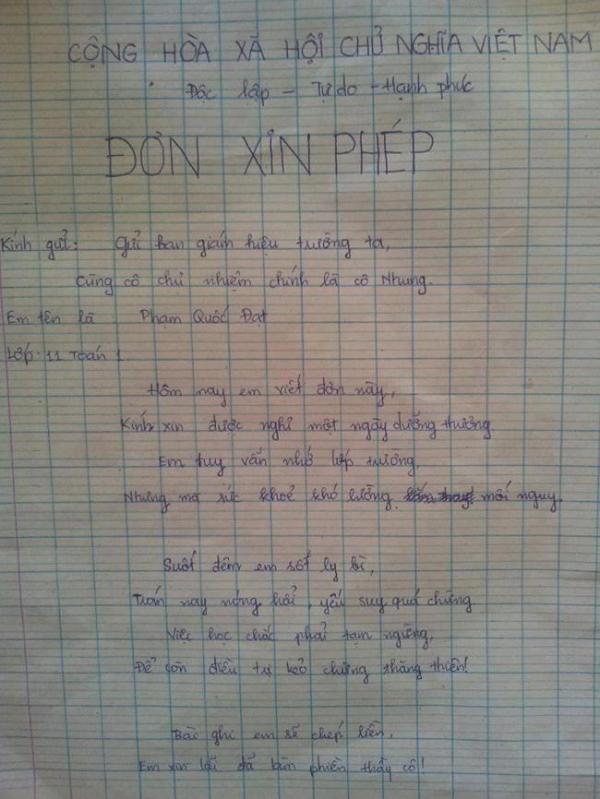 CỘNG HÒA XÃ HỘI CHỦ NGHĨA VIỆT NAM
Độc lập - Tự do - Hạnh phúc
ĐƠN XIN PHÉP
Kính gửi: Gửi ban giám hiệu trường ta,
Cùng cô chủ nhiệm chính là cô Nhung.
Em tên là Phạm Quốc Đạt
Lớp 11 Toán 1
Hôm nay em viết đơn này,
Kính xin được nghỉ một ngày dưỡng thương
Em tuy vẫn nhớ lớp trường
Nhưng mà sức khoẻ khó lường mối nguy.
Suốt đêm em sốt ly bì,
Trán nay nóng hổi, yếu suy quá chừng
Việc học chắc phải tạm ngừng,
Để còn điều trị kẻo chừng thăng thiên!
Bài ghi em sẽ chép liền,
Em xin lỗi đã làm phiền thầy cô!